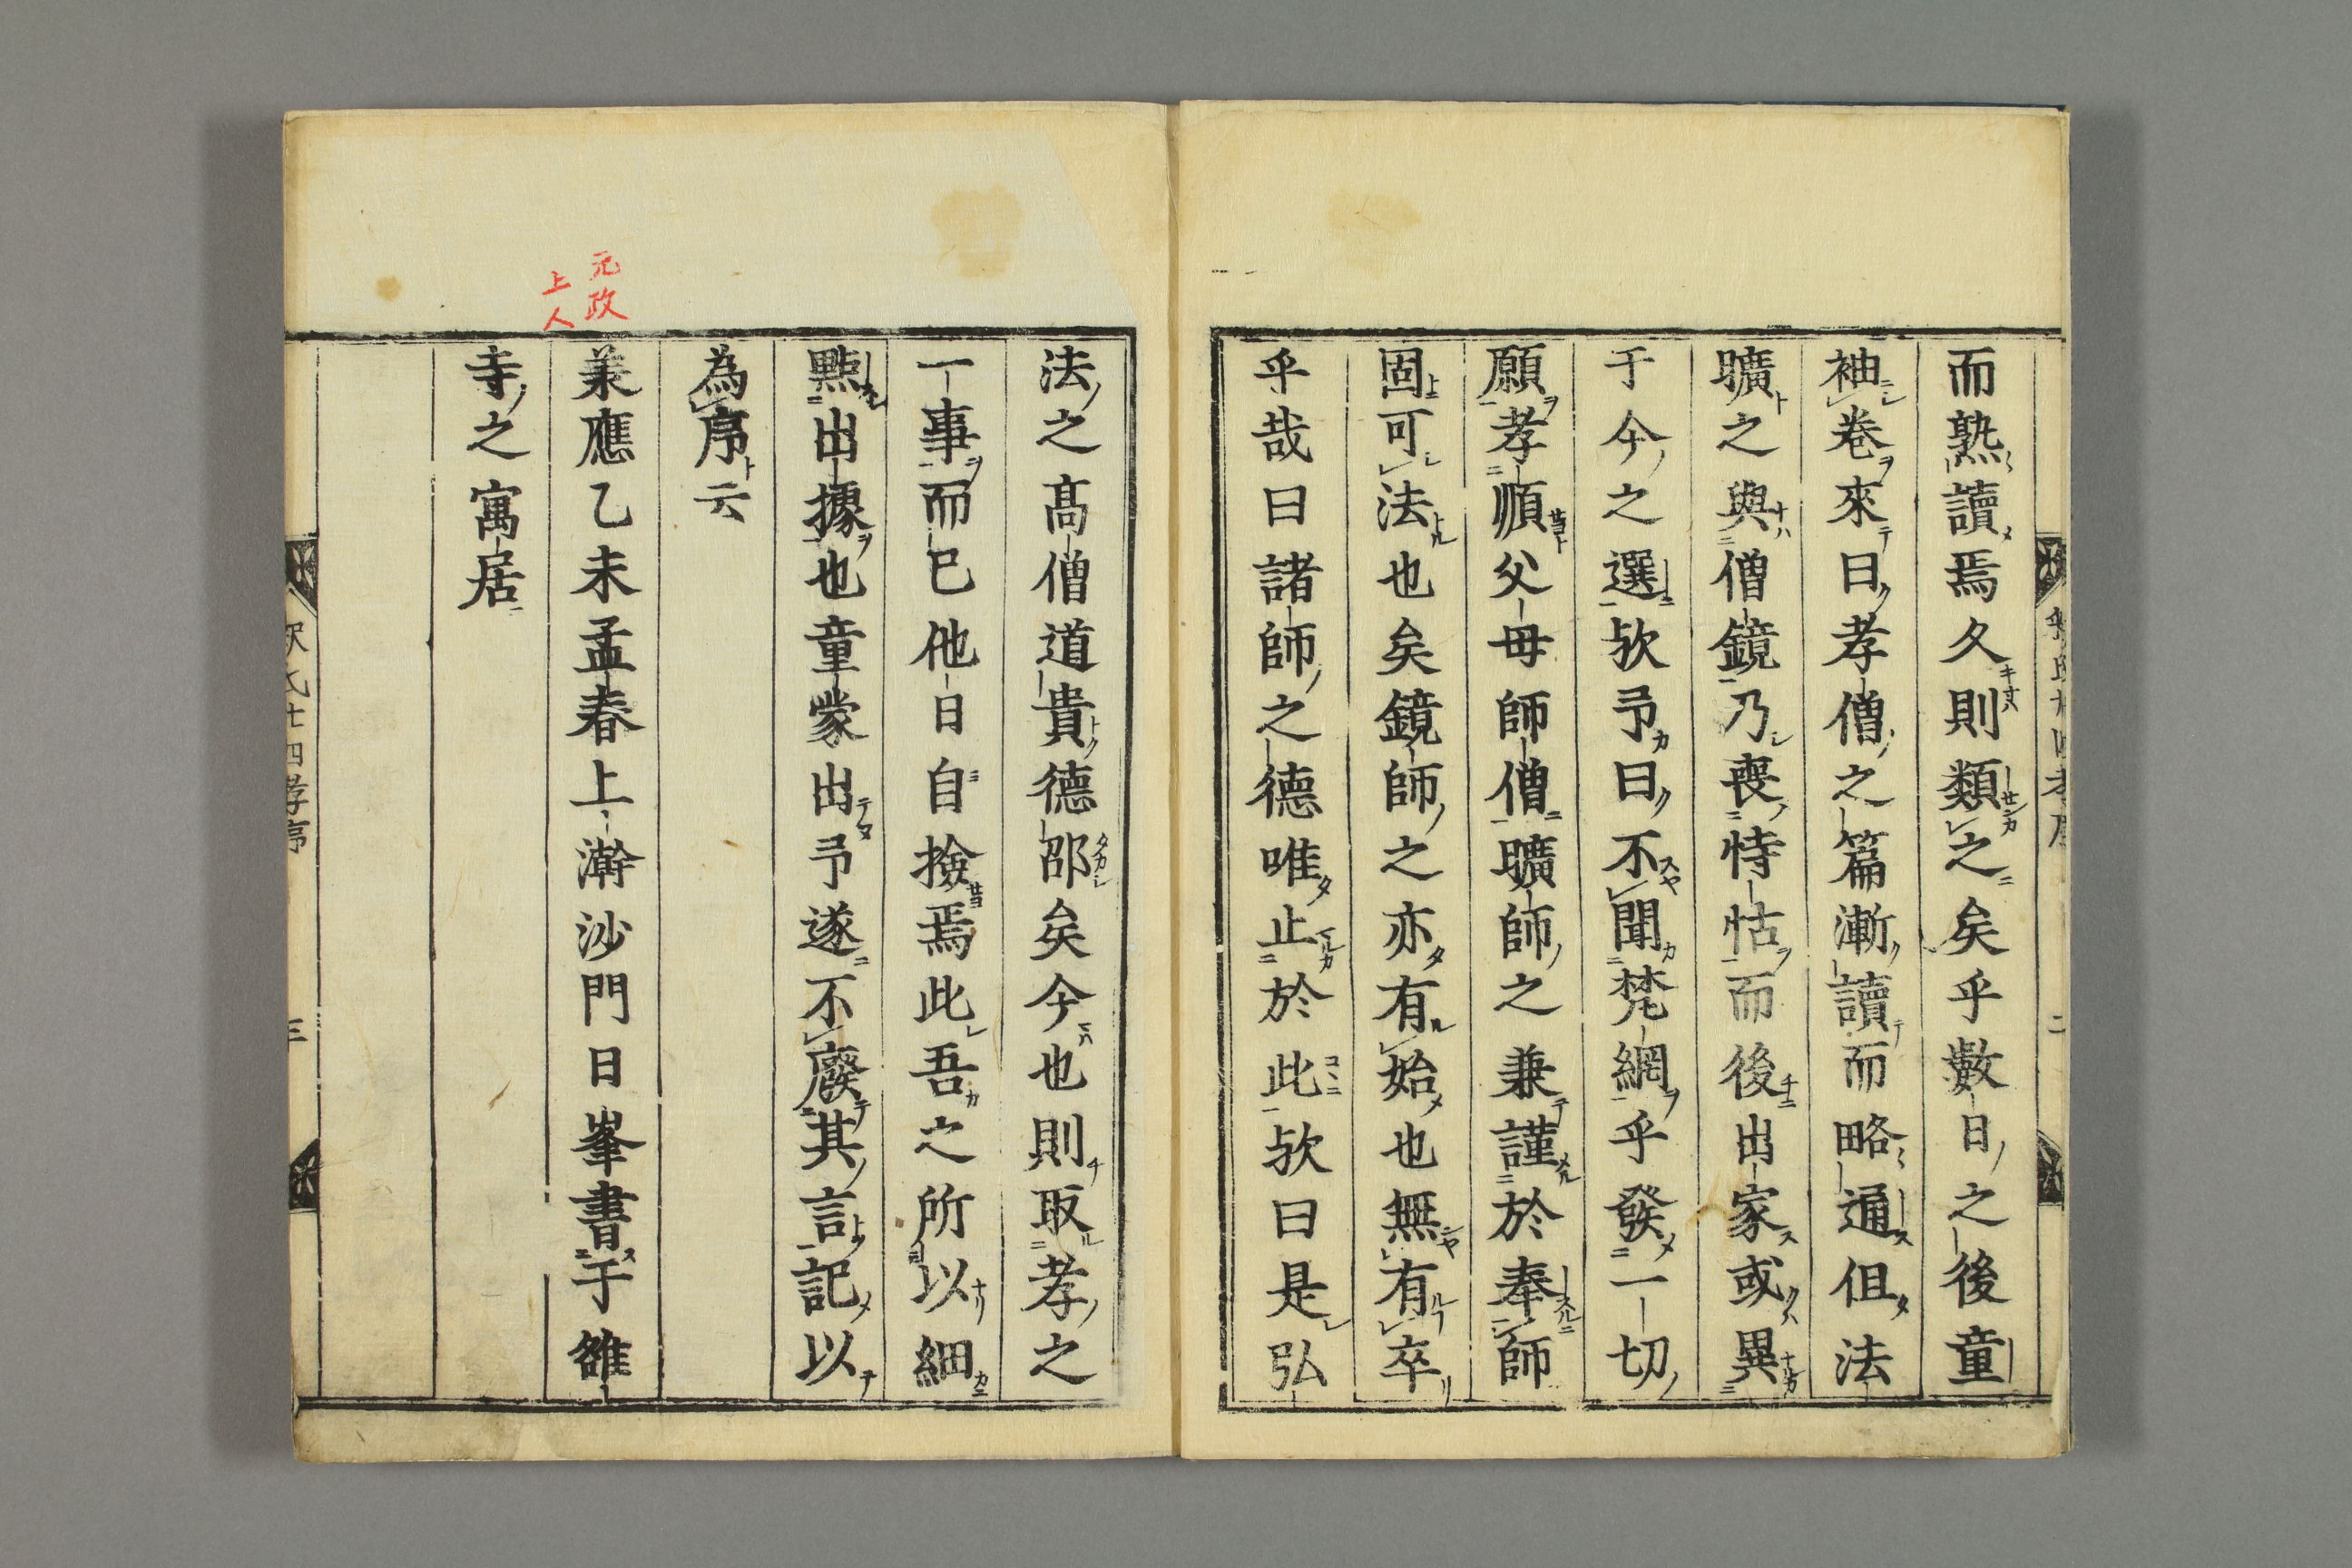 而熟讀焉久則類之矣乎數日之後童
袖卷來曰孝僧之篇漸讀而略通伹法
曠之與僧鏡乃喪恃怙而後出家或異
于今之選歟予曰不聞梵網乎發一切
願孝順父母師僧曠師之兼謹於奉師
固可法也矣鏡師之亦有始也無有卒
乎哉曰諸師之德唯止於此歟曰是弘
法之高僧道貴德邵矣今也則取孝之
一事而已他日自撿焉此吾之所以細
點出據也童蒙出予遂不廢其言記以
為序云
元政
上人
兼應乙未孟春上澣沙門日峯書于雒
寺之寓居
釈氏廿四孝序
三